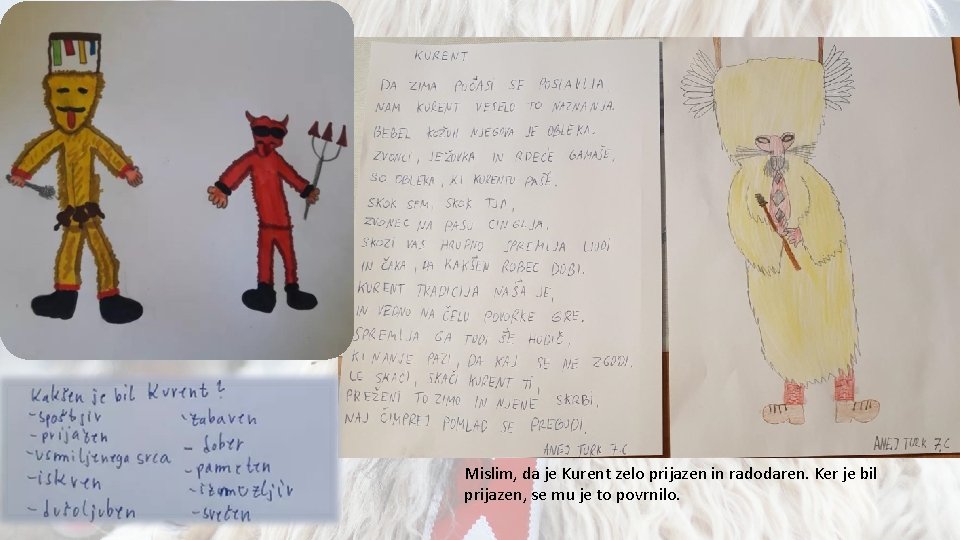 KURENT
DA ZIMA POČASI SE POSLAVLJA
NAM KURENT VESELO TO NAZNANJA.
BEBEL KOŽUH NJEGOVA JE OBLEKA.
ZVONCI, JEŽOVKA IN RDEČE GAMAŠE,
SO OBLEKA, KI KURENTU PAŠE.
SKOK SEM, SKOK TJA,
ZVONEC NA PASU CINGLJA,
SKOZI VAS HRUPNO SPREMLJA LJUDI
IN ČAKA, DA KAKŠEN ROBEC DOBI.
KURENT TRADICIJA NAŠA JE,
IN VEDNO NA ČELU POVORKE GRE.
SPREMLJA GA TUDI ŠE HUDIČ,
KI NANJE PAZI, DA KAJ SE NE ZGODI.
LE SKAČI, SKAČI KURENT TI,
PREŽENI TO ZIMO IN NJENE SKRBI,
NAJ ČIMPREJ POMLAD SE PREBUDI.
ANEJ TURK 7.C
ANEJ TURK 7.C
Kakšen je bil Kurent?
- spoštljiv
- prijazen
- usmiljenega srca
- iskren
- dušoljuben
- zabaven
- dober
- pameten
- iznajdljiv
- svečen
Mislim, da je Kurent zelo prijazen in radodaren. Ker je bil
prijazen, se mu je to povrnilo.